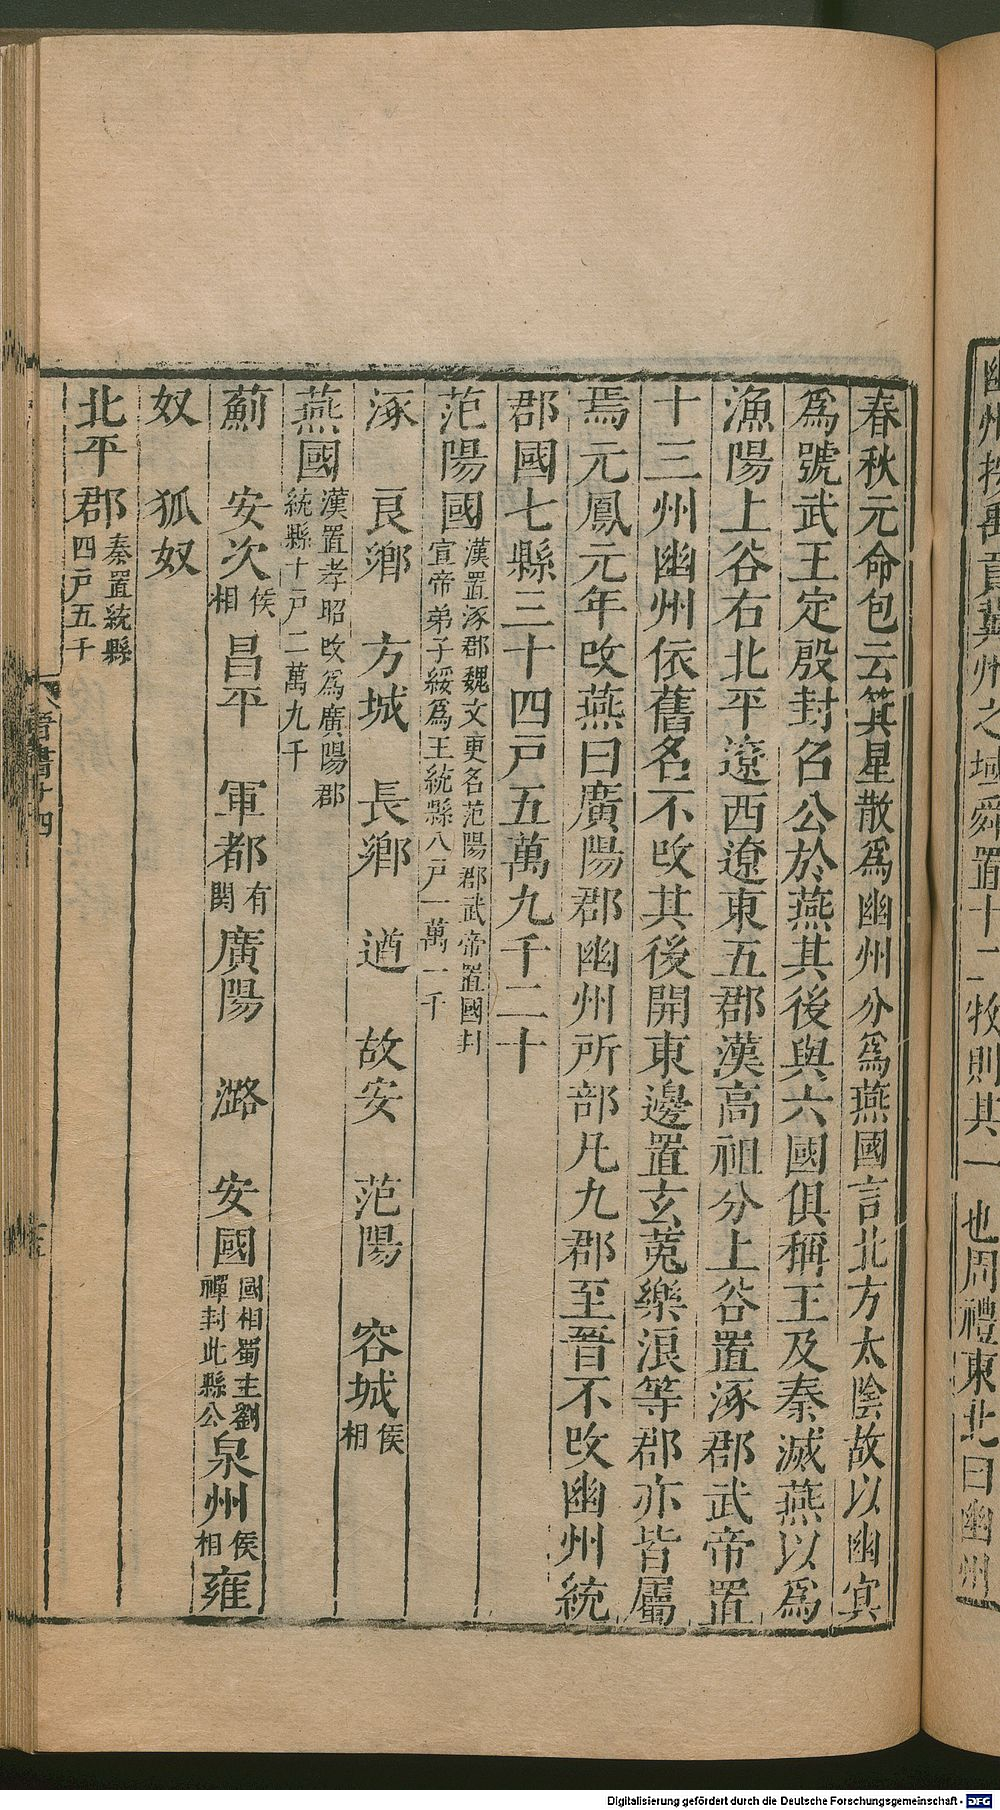 幽州按禹貢冀州之域舜置十二牧則其一也周禮東北曰幽州
春秋元命包云箕星散爲幽州分爲燕國言北方太陰故以幽冥
爲號武王定殷封召公於燕其後與六國俱稱王及秦滅燕以爲
漁陽上谷右北平遼西遼東五郡漢高祖分上谷置涿郡武帝置
十三州幽州依舊名不改其後開東邊置玄菟樂浪等郡亦皆屬
焉元鳳元年改燕曰廣陽郡幽州所部凡九郡至晉不改幽州統
郡國七縣三十四戸五萬九千二十
范陽國漢置涿郡魏文更名范陽郡武帝置國封宣帝弟子綏爲王統縣八戸一萬一千
涿 良鄉 方城 長鄉 遒 故安 范陽 容城侯相
燕國漢置孝昭改爲廣陽郡統縣十戸二萬九千
薊 安次侯相 昌平 軍都有関 廣陽 潞 安國國相蜀主劉禪封此縣公 泉州侯相 雍
奴 狐奴
北平郡秦置統縣四戸五千
晋書十四
Digitalisierung gefördert durch die Deutsche Forschungsgemeinschaft - DFG